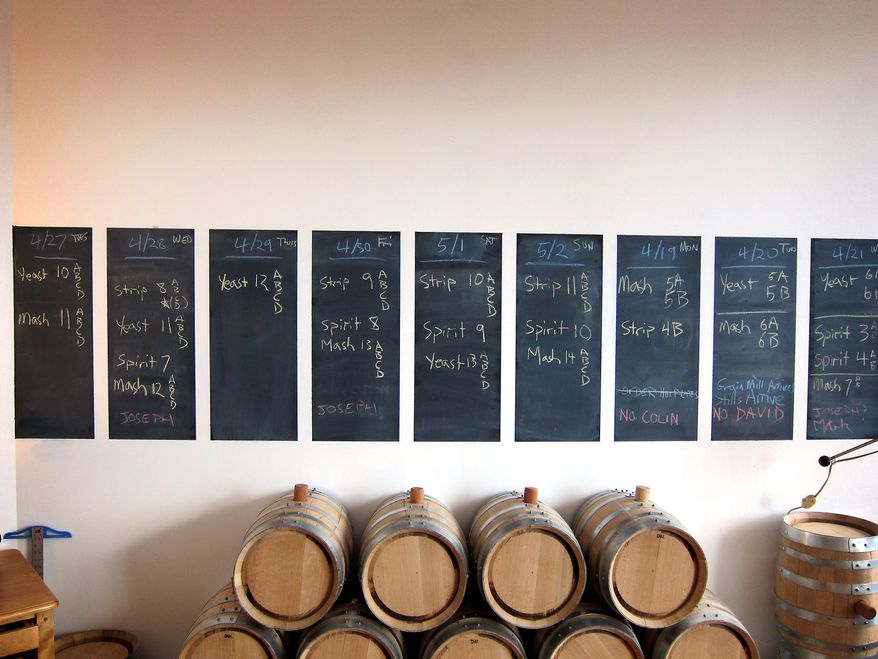 4/27 TUES
Yeast 10 A
B
C
D
Mash 11 A
B
C
D
4/28 WED
Strip 8 A
B
*(C)
D
Yeast 11 A
B
C
D
Spirit 7
Mash 12 A
B
C
D
JOSEPH
4/29 Thurs
Yeast 12 A
B
C
D
4/30 Fri
Strip 9 A
B
C
D
Spirit 8
Mash 13 A
B
C
D
JOSEPH
5/1 SAT
Strip 10 A
B
C
D
Spirit 9
Yeast 13 A
B
C
D
5/2 SUN
Strip 11 A
B
C
D
Spirit 10
Mash 14 A
B
C
D
4/19 MON
Mash 5A
5B
Strip 4B
ORDER HOT PLATES
NO COLIN
4/20 TUES
Yeast 5A
5B
Mash 6A
6B
Grain Mill Arrives
Stills Arrive
NO DAVID
4/21 W
Yeast 6A
6B
Spirit 3
Spirit 4
Mash 7 A
B
JOSEPH?